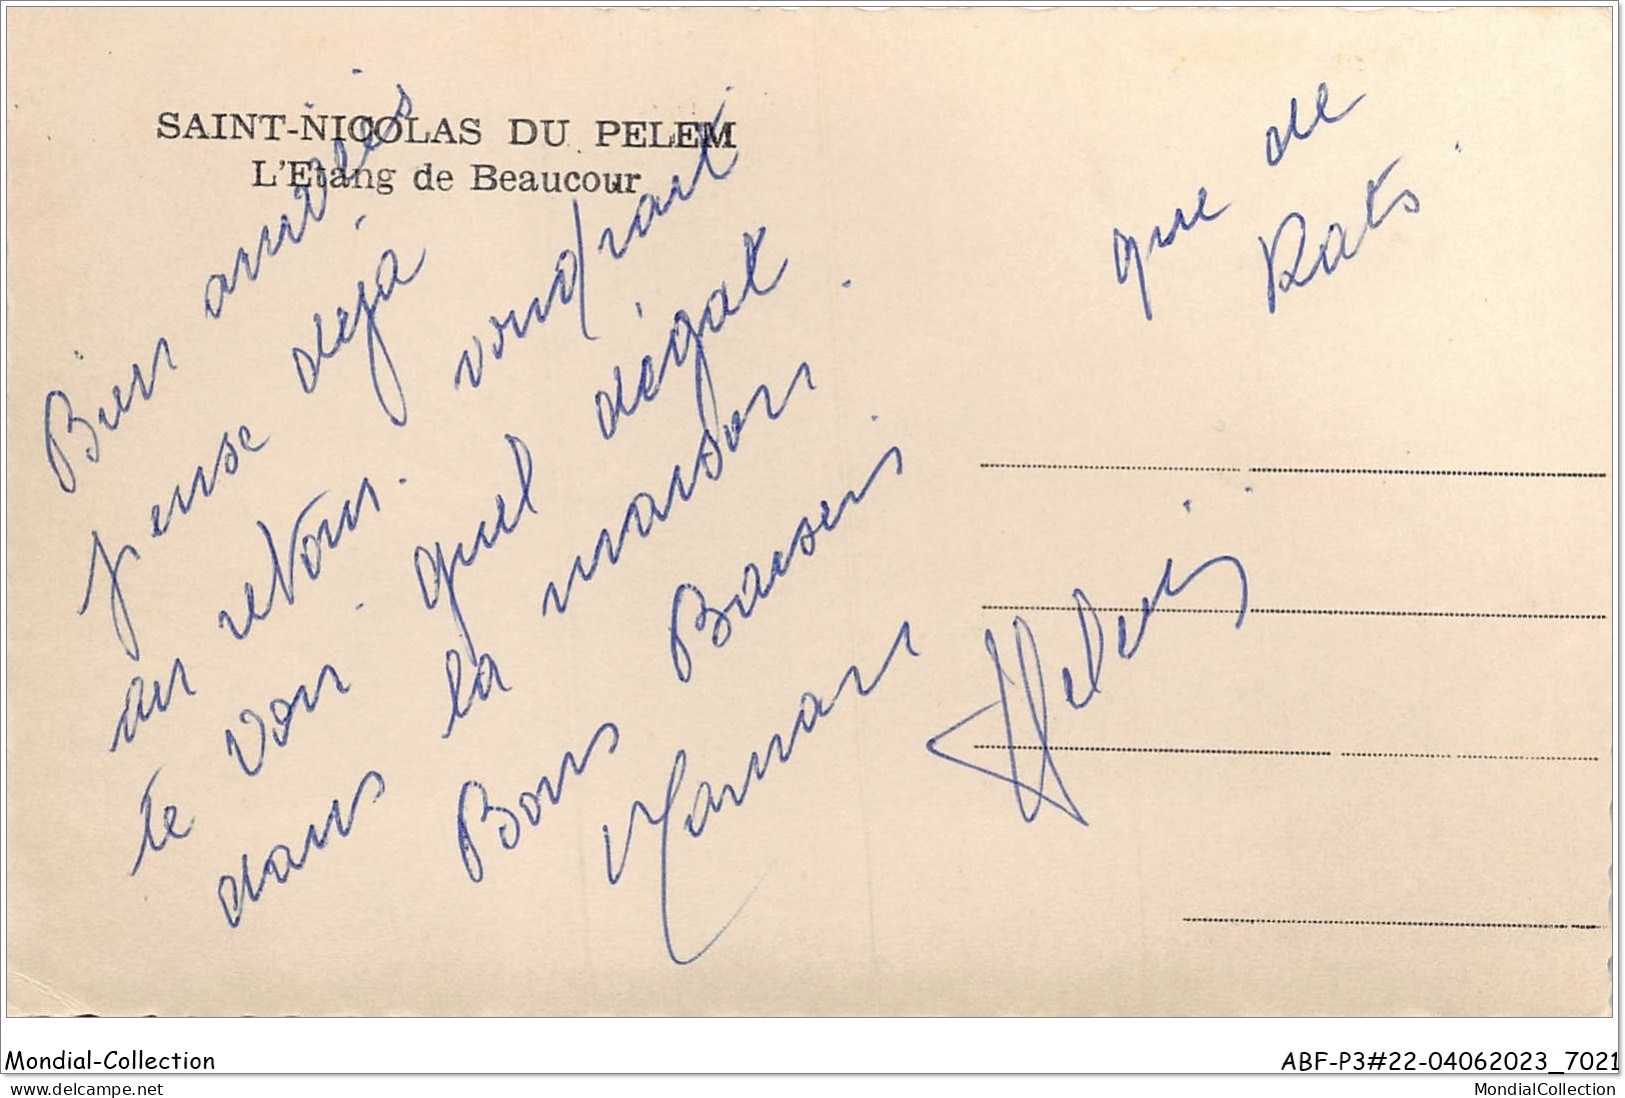 SAINT-NICOLAS DU PELEM
L'Etang de Beaucour
Bien arrivés
pense déjà
au retour. voudrait
te voir. quel dégat
dans la maison.
Bons Baisers
Maman
que de
Rats.
Mondial-Collection
ABF-P3#22-04062023_7021
www.delcampe.net
MondialCollection